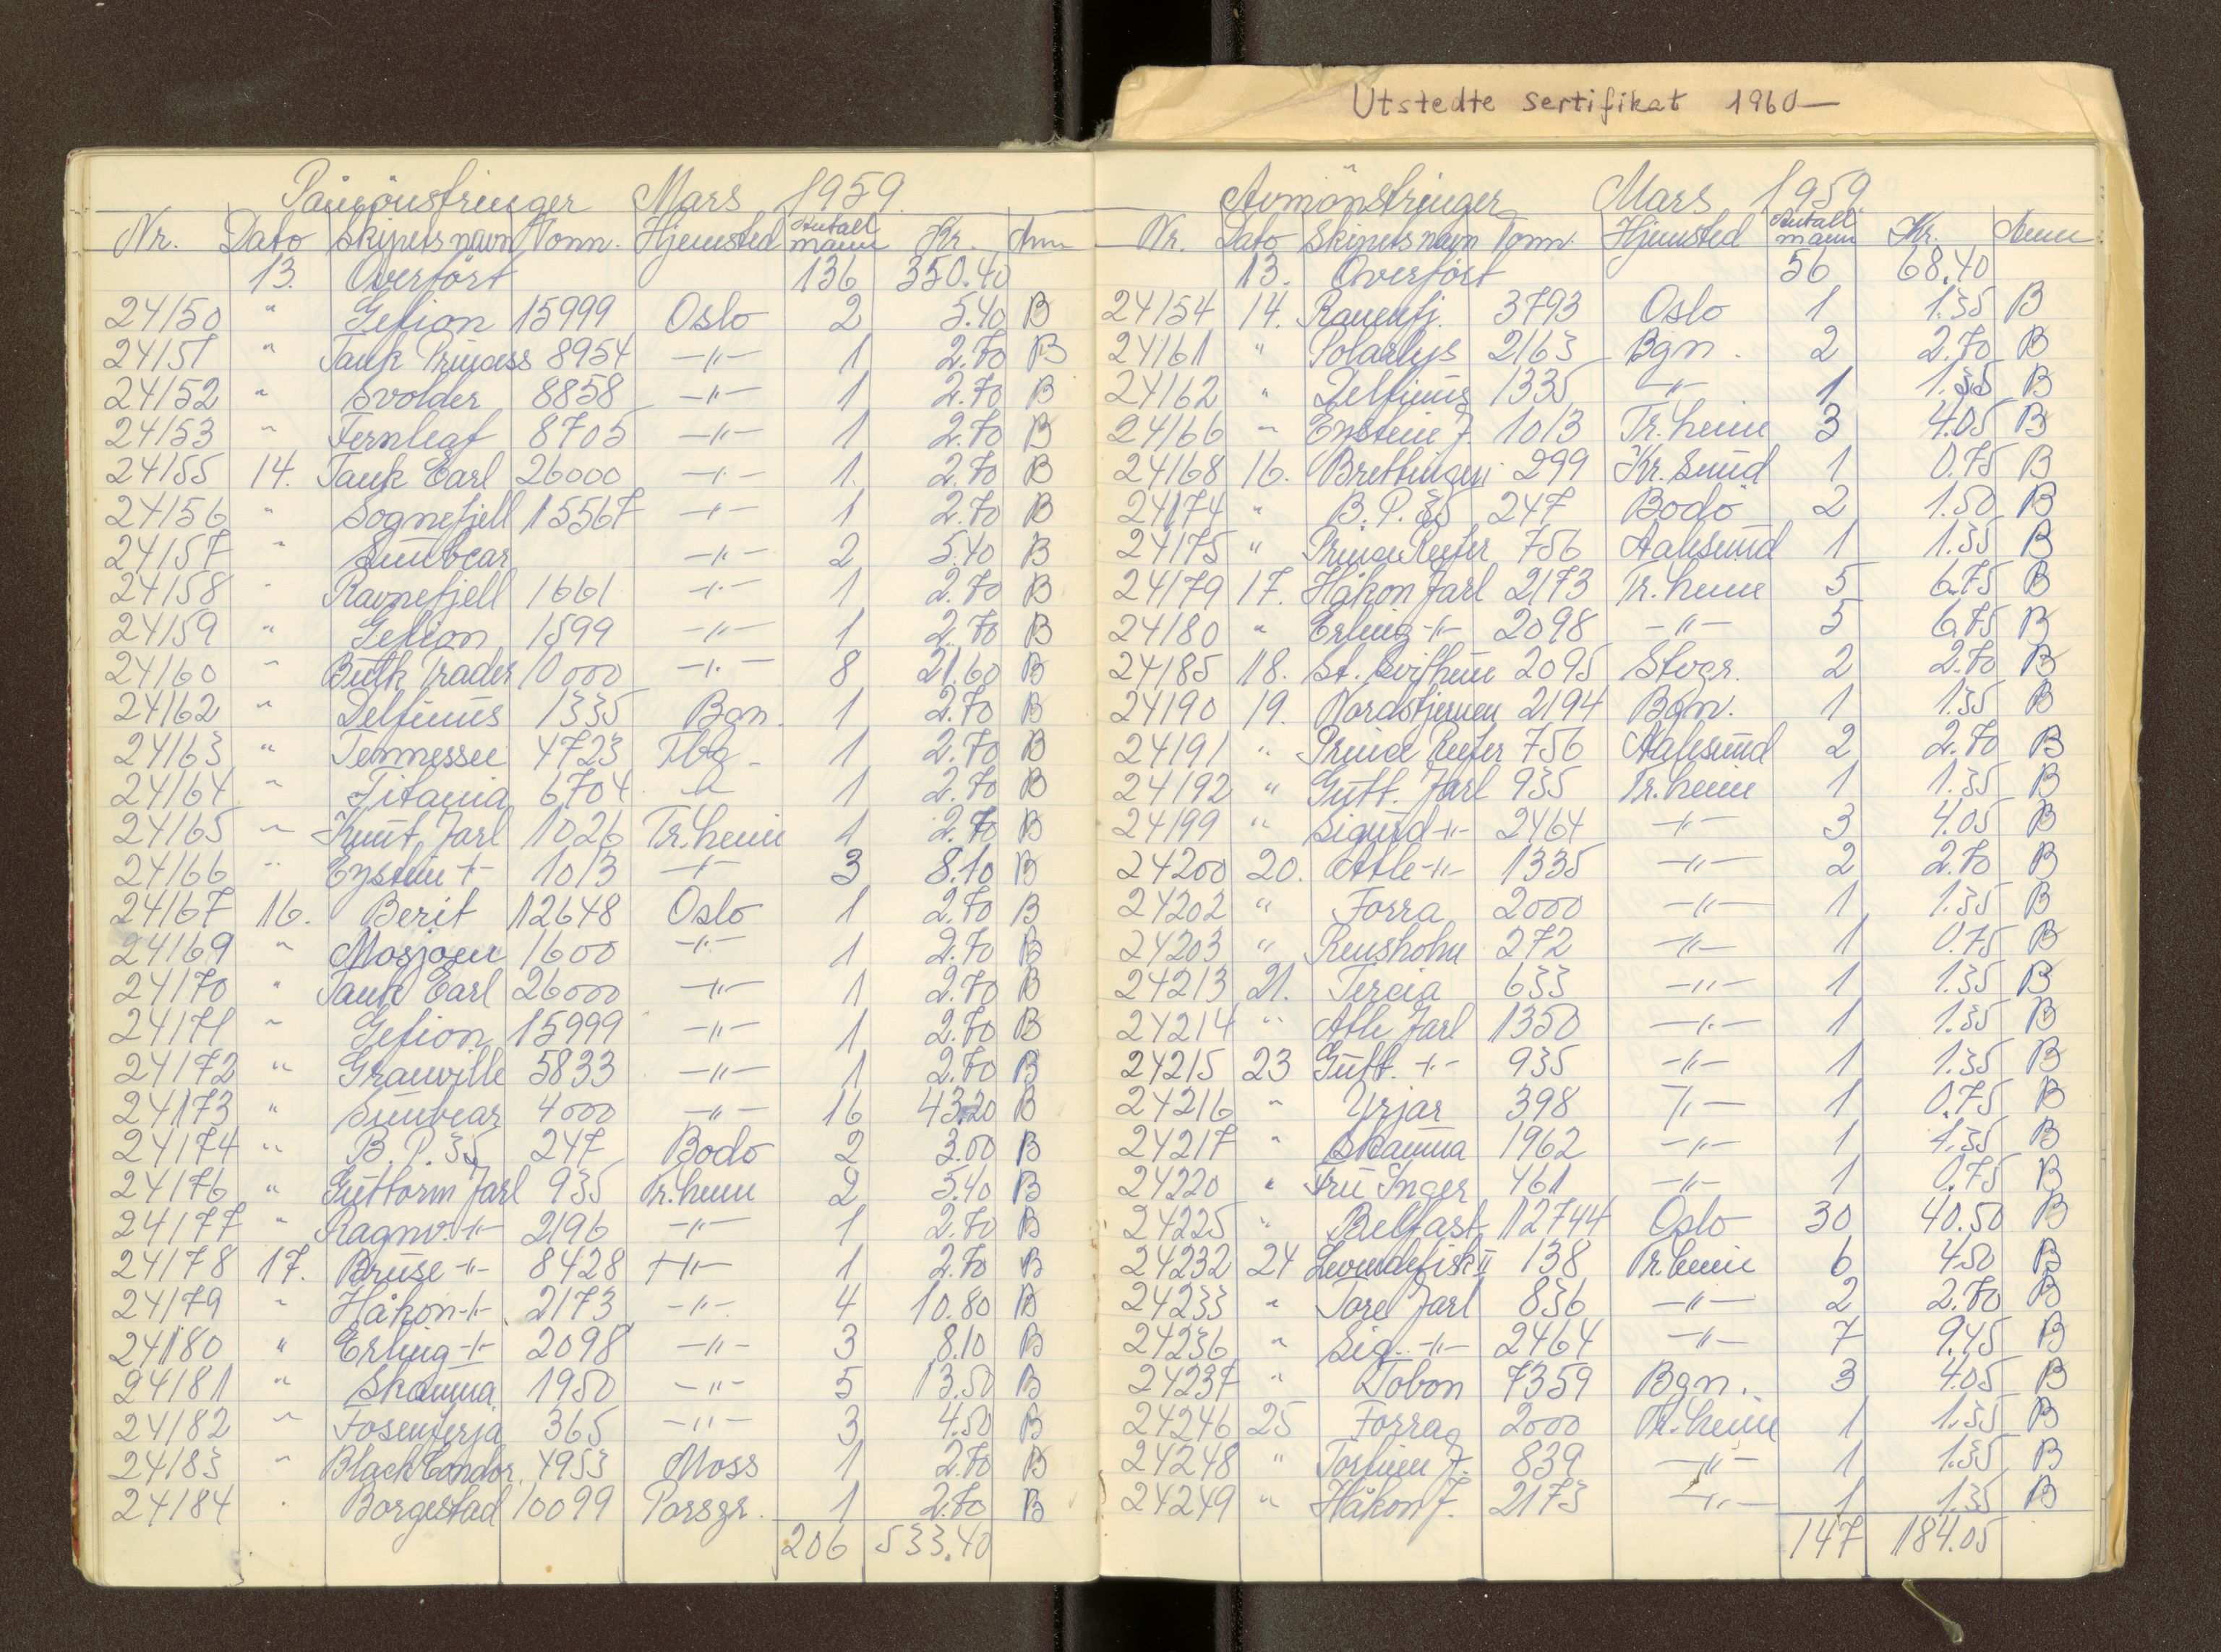 Utstedte sertifikat 1960—
Påmönstringer Mars 1959.
Nr. Dato Skipets navn Tonn. Hjemsted Antall mann Kr. Anm
13. Overfört 136 350.40
24150 " Gefion 15999 Oslo 2 5.40 B
24151 " Tank Princess 8954 —"— 1 2.70 B
24152 " Svolder 8858 —"— 1 2.70 B
24153 " Fernleaf 8705 —"— 1 2.70 B
24155 14. Tank Earl 26000 —"— 1. 2.70 B
24156 " Sognefjell 15567 —"— 1 2.70 B
24157 " Sunbear —"— 2 5.40 B
24158 " Ravnefjell 1661 —"— 1 2.70 B
24159 " Gefion 1599 —"— 1 2.70 B
24160 " Bulk Trader 10000 —"— 8 21.60 B
24162 " Delfinus 1335 Bgn. 1 2.70 B
24163 " Tennessee 4723 Tbg. 1 2.70 B
24164 " Titania 6704 " 1 2.70 B
24165 " Knut Jarl 1026 Tr.heim 1 2.70 B
24166 " Eystein —"— 1013 —"— 3 8.10 B
24167 16. Berit 12648 Oslo 1 2.70 B
24169 " Mosjoen 1600 —"— 1 2.70 B
24170 " Tank Earl 26000 —"— 1 2.70 B
24171 " Gefion 15999 —"— 1 2.70 B
24172 " Granville 5833 —"— 1 2.70 B
24173 " Sunbear 4000 —"— 16 43.20 B
24174 " B.P. 35 247 Bodö 2 3.00 B
24176 " Guttorm Jarl 935 Tr.heim 2 5.40 B
24177 " Ragnv. —"— 2196 —"— 1 2.70 B
24178 17. Bruse —"— 8428 —"— 1 2.70 B
24179 " Håkon —"— 2173 —"— 4 10.80 B
24180 " Erling —"— 2098 —"— 3 8.10 B
24181 " Skauma 1950 —"— 5 13.50 B
24182 " Fosenferja 365 —"— 3 4.50 B
24183 " Black Condor 4953 Moss 1 2.70 B
24184 " Borgestad 10099 Porsgr. 1 2.70 B
206 533.40
Avmönstringer Mars 1959.
Nr. Dato Skipets navn Tonn. Hjemsted Antall mann Kr. Anm
13. Overfört 56 68.40
24154 14. Ravnefj. 3793 Oslo 1 1.35 B
24161 " Polarlys 2163 Bgn. 2 2.70 B
24162 " Delfinus 1335 —"— 1 1.35 B
24166 " Eystein J. 1013 Tr.heim 3 4.05 B
24168 16. Brettingen 299 Kr.Sund 1 0.75 B
24174 " B.P. 35 247 Bodö 2 1.50 B
24175 " Prince Reefer 756 Aalesund 1 1.35 B
24179 17. Håkon Jarl 2173 Tr.heim 5 6.75 B
24180 " Erling —"— 2098 —"— 5 6.75 B
24185 18. St. Svithun 2095 Stvgr. 2 2.70 B
24190 19. Nordstjernen 2194 Bgn. 1 1.35 B
24191 " Prince Reefer 756 Aalesund 2 2.70 B
24192 " Gutt. Jarl 935 Tr.heim 1 1.35 B
24199 " Sigurd —"— 2464 —"— 3 4.05 B
24200 20. Atle —"— 1335 —"— 2 2.70 B
24202 " Forra 2000 —"— 1 1.35 B
24203 " Rensholm 272 —"— 1 0.75 B
24213 21. Tercia 633 —"— 1 1.35 B
24214 " Atle Jarl 1350 —"— 1 1.35 B
24215 23 Gutt. —"— 935 —"— 1 1.35 B
24216 " Yrjar 398 —"— 1 0.75 B
24217 " Skauma 1962 —"— 1 1.35 B
24220 " Fru Inger 461 —"— 1 0.75 B
24225 " Belfast 12744 Oslo 30 40.50 B
24232 24 Levendefisk II 138 Tr.heim 6 4.50 B
24233 " Tore Jarl 836 —"— 2 2.70 B
24236 " Sig. —"— 2464 —"— 7 9.45 B
24237 " Tobon 7359 Bgn. 3 4.05 B
24246 25 Forra 2000 Tr.heim 1 1.35 B
24248 " Torfinn J. 839 —"— 1 1.35 B
24249 " Håkon J. 2173 —"— 1 1.35 B
147 184.05